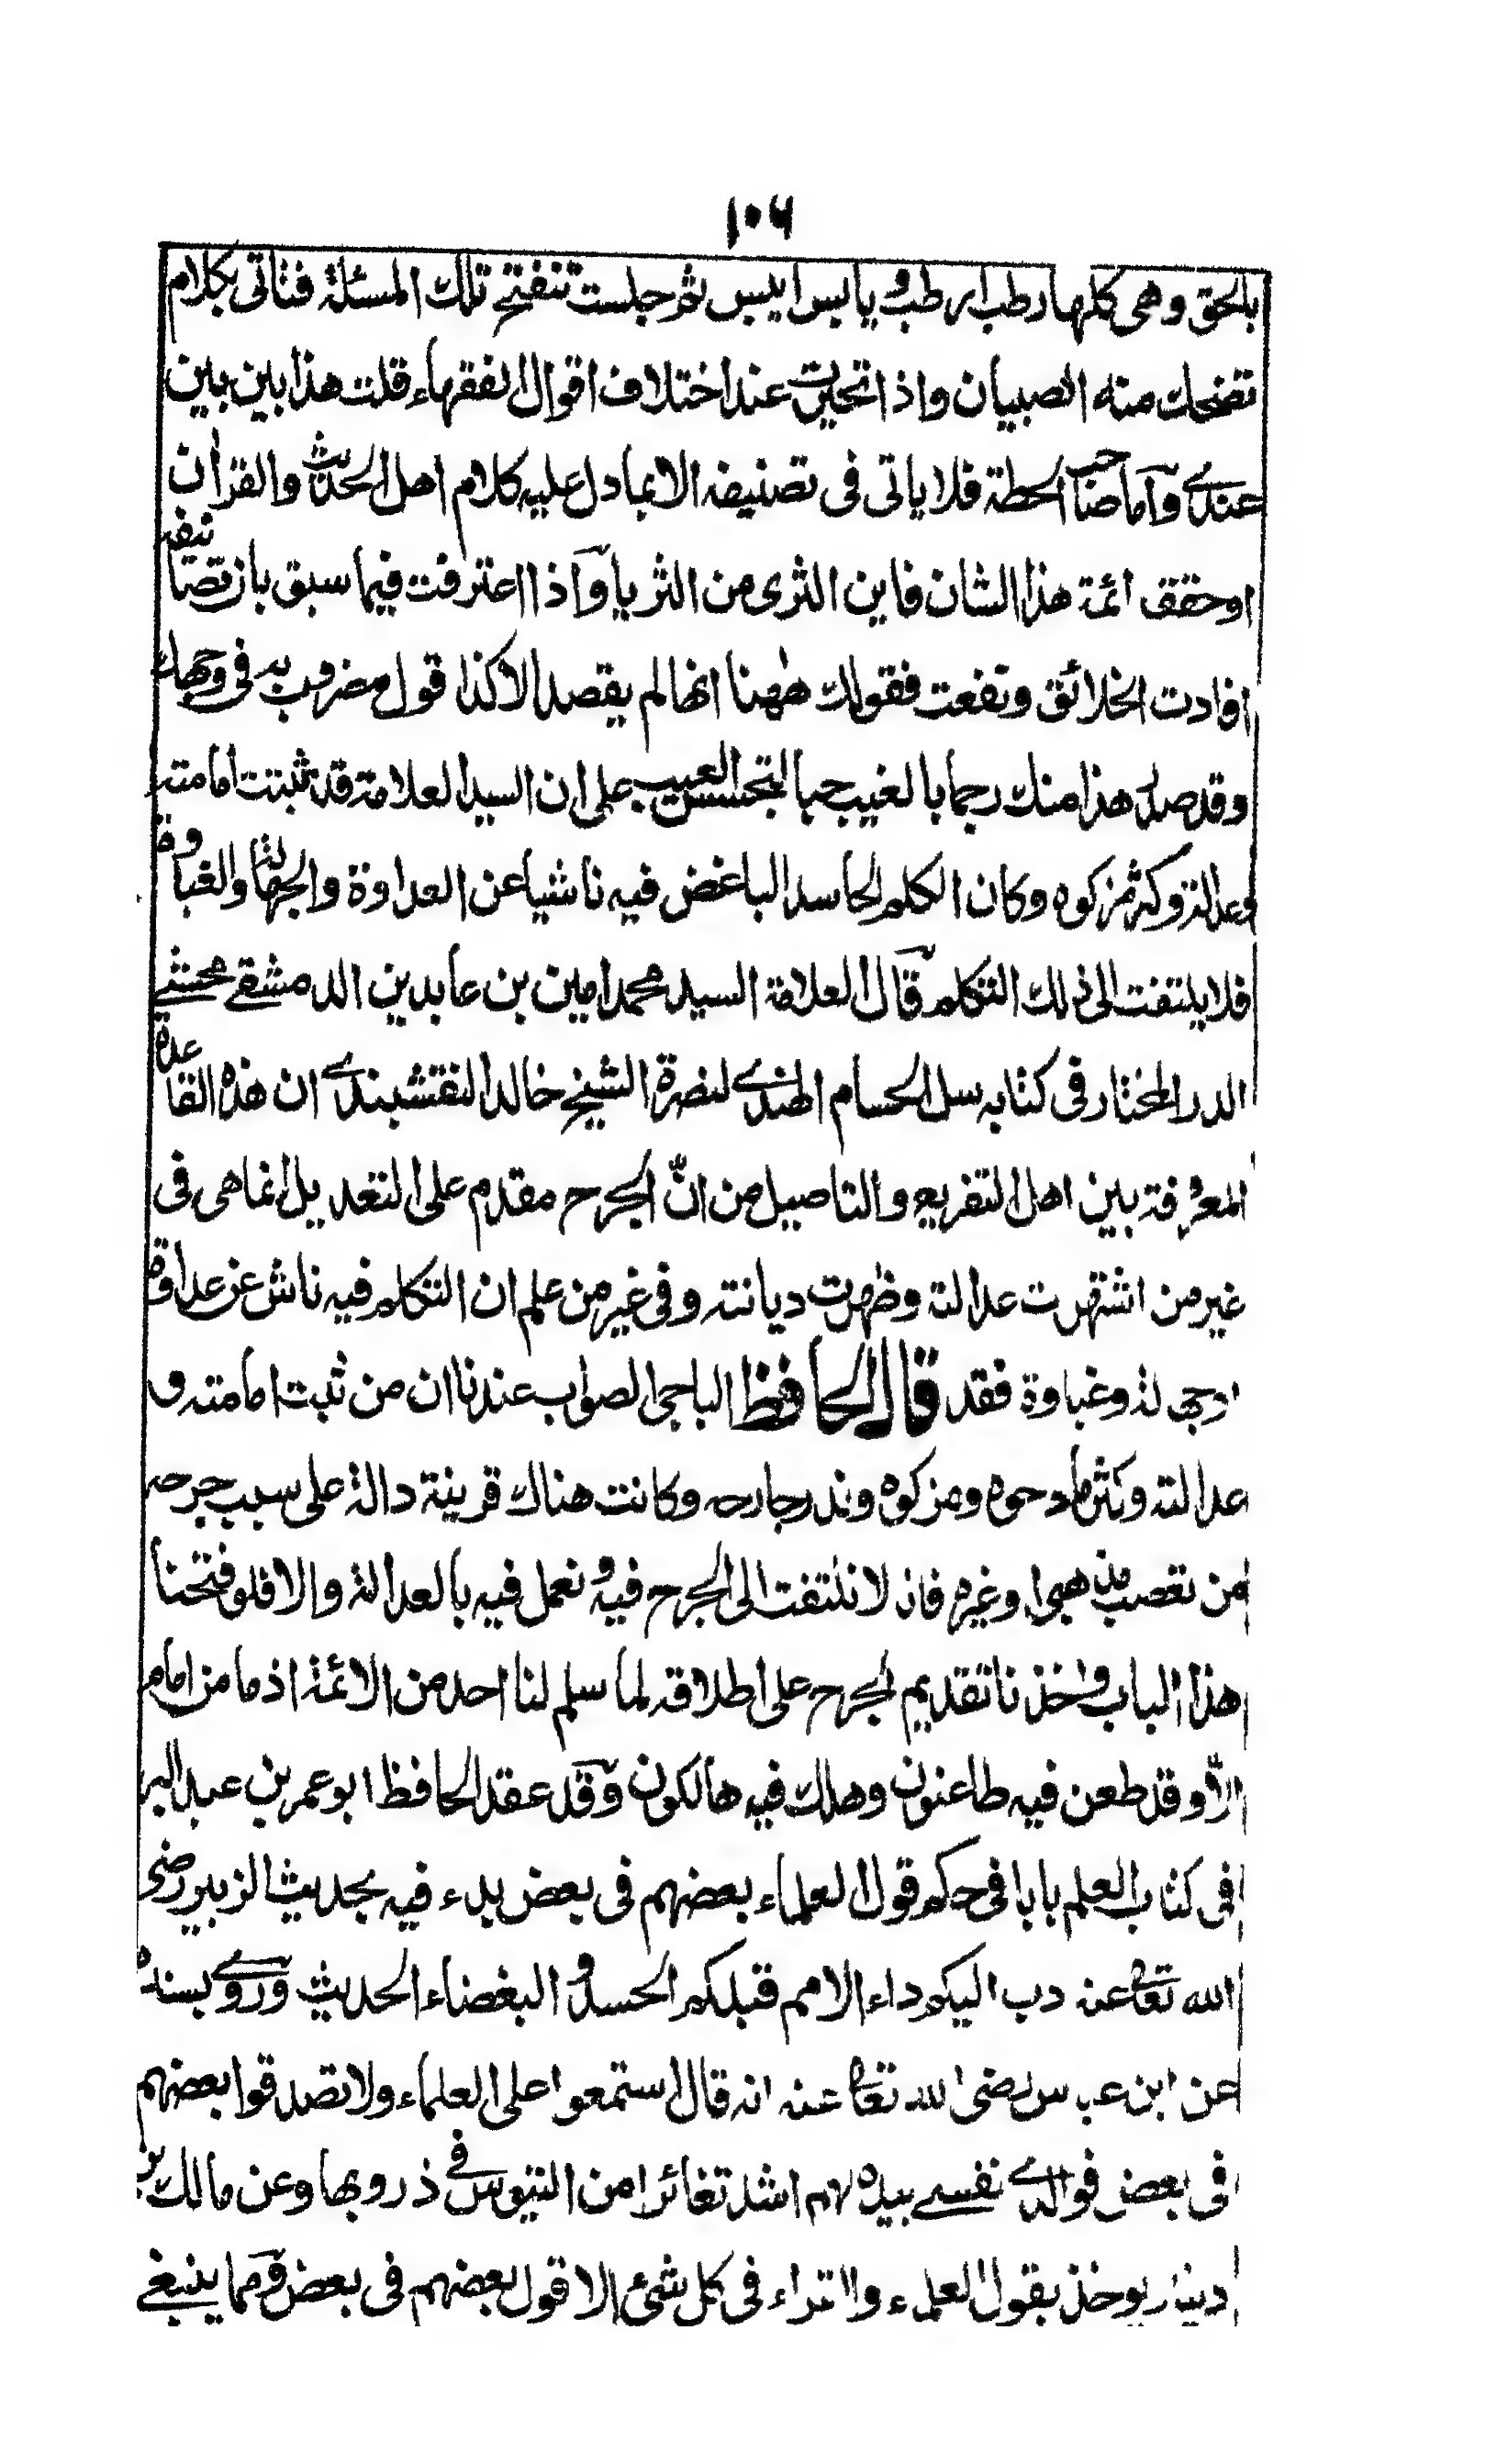 ١٠٦
بالحق وهى كلها رطب ارطب و يابس ايبس ثم جلست تنفتح تلك المسئلة فتاتى بكلام
تضحك منه الصبيان واذا تحيرت عند اختلاف اقوال الفقهاء قلت هذا بين بين
عندى وآما صاحب الحطة فلا ياتى فى تصنيفه الا بما دل عليه كلام اهل الحديث والقرآن
اوحققه ائمة هذا الشان فاين الثرى من الثريا وآذا اعترفت فيما سبق بان تصانيفه
افادت الخلائق ونفعت فقولك ههنا انها لم يقصد الا كذا قول مضروب به فى وجهك
وقد صدر هذا منك رجما بالغيب حبا لتجسس العيب على ان السيد العلامة قد ثبتت امامته
وعدالته وكثر مزكوه وكان الكلم الحاسد الباغض فيه ناشيا عن العداوة والجهالة والغباوة
فلا يلتفت الى ذلك التكلم قآل العلامة السيد محمد امين بن عابدين الدمشقى محشى
الدر المختار فى كتابه سل الحسام الهندى لنصرة الشيخ خالد النقشبندى ان هذه القاعدة
المعروفة بين اهل التفريع والتاصيل من انّ الجرح مقدم على التعديل انما هى فى
غير من اشتهرت عدالته وظهرت ديانته وفى غير من علم ان التكلم فيه ناش عن عداوة
اوجهالة وغباوة فقد قال الحافظ الباجى الصواب عندنا ان من ثبت امامته و
عدالته وكثر مادحوه ومزكوه وندر جارحه وكانت هناك قرينة دالة على سبب جرحه
من تعصب مذهبى اوغيره فانه لا نلتفت الى الجرح فيه و نعمل فيه بالعدالة والا فلو فتحنا
هذا الباب واخذنا تقديم الجرح على اطلاقه لما سلم لنا احد من الائمة اذ ما من امام
الّا وقد طعن فيه طاعنون وهلك فيه هالكون وقد عقد الحافظ ابو عمر بن عبد البر
فى كتاب العلم بابا فى حكم قول العلماء بعضهم فى بعض بدء فيه بحديث الزبير رضى
الله تعالى عنه دب اليكم داء الامم قبلكم الحسد و البغضاء الحديث وروى بسنده
عن ابن عباس رضى الله تعالى عنه انه قال استمعوا على العلماء ولا تصدقوا بعضهم
فى بعض فوالذى نفسى بيده لهم اشد تغائرا من التيوس فى ذروبها وعن مالك بن
دينار يوخذ بقول العلماء والقراء فى كل شئ الا قول بعضهم فى بعض ومما ينبغى